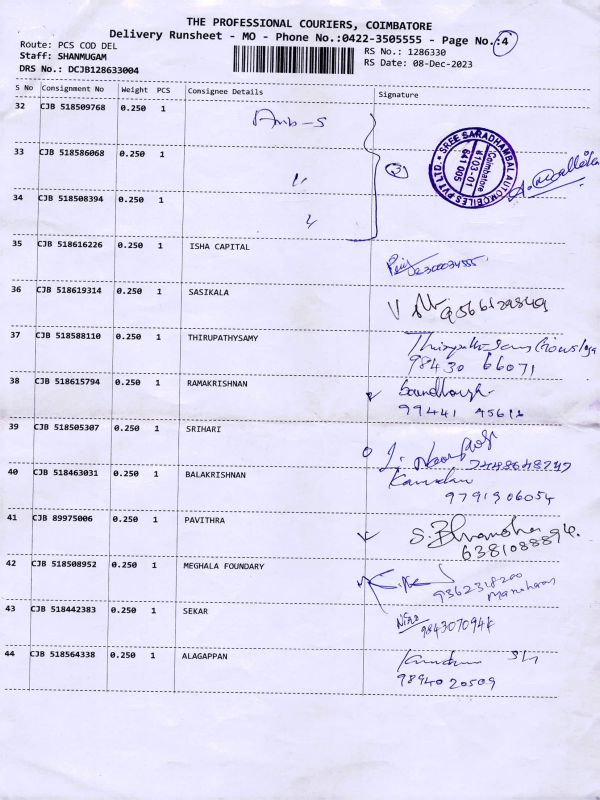 THE PROFESSIONAL COURIERS, COIMBATORE
Delivery Runsheet - MO - Phone No.:0422-3505555 - Page No.:4
Route: PCS COD DEL
RS No.: 1286330
Staff: SHANMUGAM
RS Date: 08-Dec-2023
DRS No.: DCJB128633004
S No Consignment No Weight PCS Consignee Details Signature
32 CJB 518509768 0.250 1
33 CJB 518586068 0.250 1
(3)
SREE SARADHAMBAL AUTOMOBILES PVT LTD. *
#103-01
Coimbatore
641 005
34 CJB 518508394 0.250 1
35 CJB 518616226 0.250 1 ISHA CAPITAL
36 CJB 518619314 0.250 1 SASIKALA
37 CJB 518588110 0.250 1 THIRUPATHYSAMY
98430 66071
38 CJB 518615794 0.250 1 RAMAKRISHNAN
39 CJB 518505307 0.250 1 SRIHARI
40 CJB 518463031 0.250 1 BALAKRISHNAN
9791906054
41 CJB 89975006 0.250 1 PAVITHRA
6381088894.
42 CJB 518508952 0.250 1 MEGHALA FOUNDARY
9362318200
Manoharan
43 CJB 518442383 0.250 1 SEKAR
44 CJB 518564338 0.250 1 ALAGAPPAN
9894020509